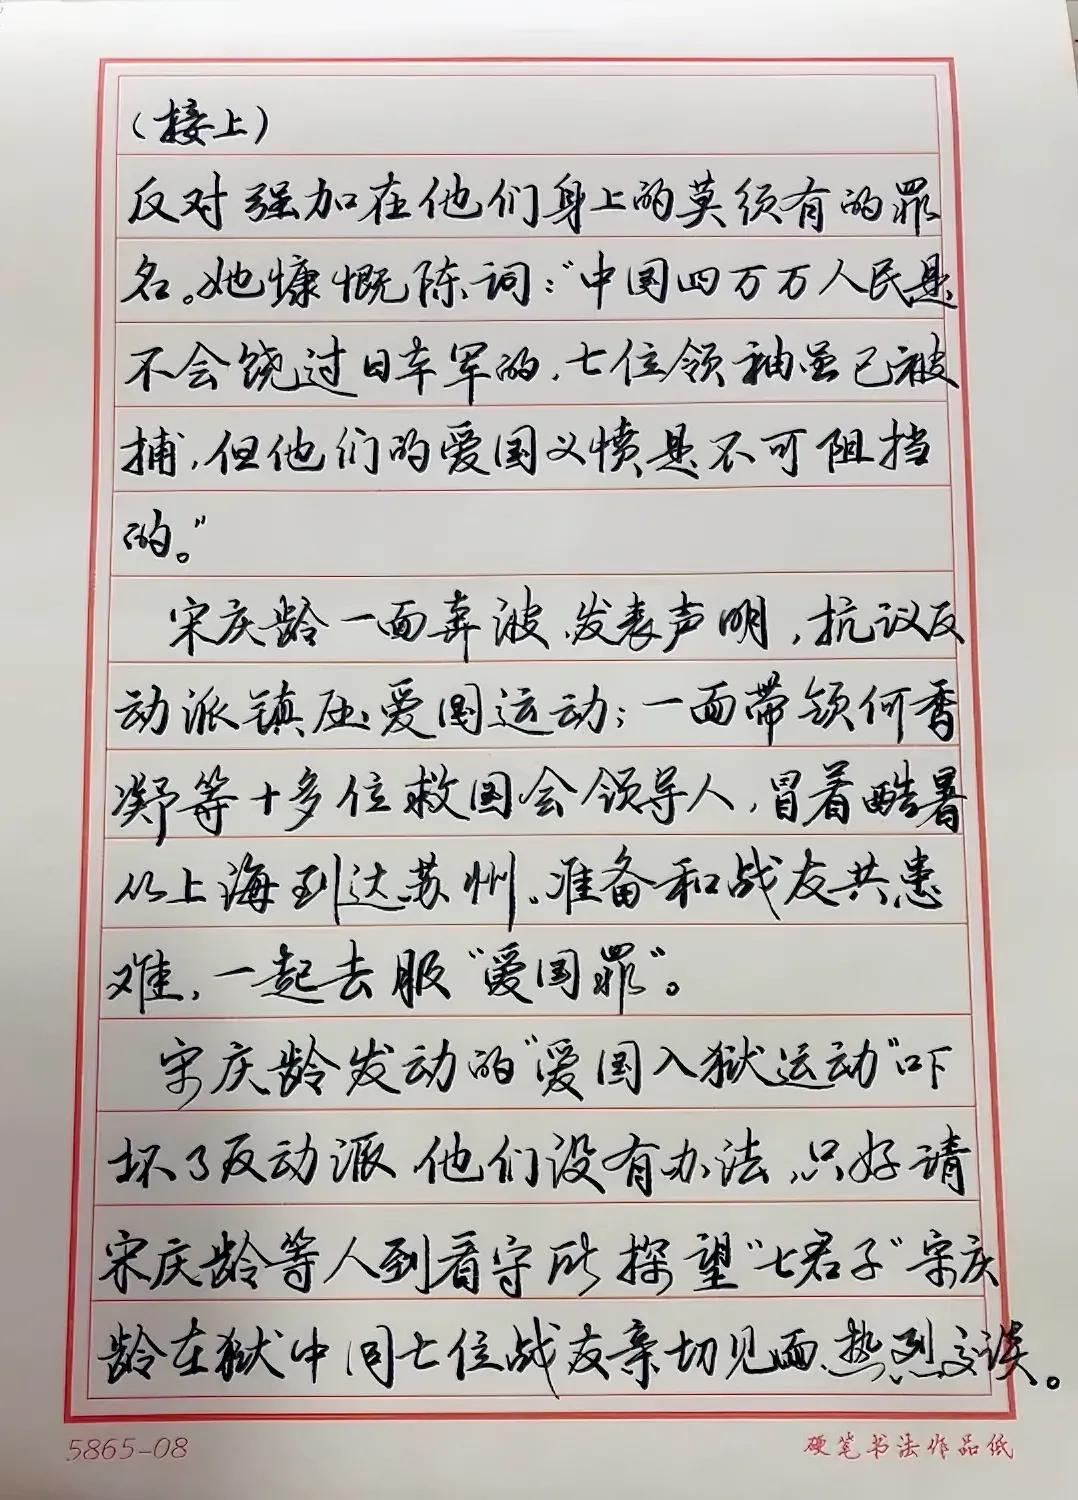 （接上）
反对强加在他们身上的莫须有的罪
名。她慷慨陈词：“中国四万万人民是
不会饶过日本军的，七位领袖虽已被
捕，但他们的爱国义愤是不可阻挡
的。”
宋庆龄一面奔波、发表声明，抗议反
动派镇压爱国运动；一面带领何香
凝等十多位救国会领导人，冒着酷暑
从上海到达苏州，准备和战友共患
难，一起去服“爱国罪”。
宋庆龄发动的“爱国入狱运动”吓
坏了反动派，他们没有办法，只好请
宋庆龄等人到看守所探望“七君子”宋庆
龄在狱中同七位战友亲切见面、热烈交谈。
5865-08
硬笔书法作品纸